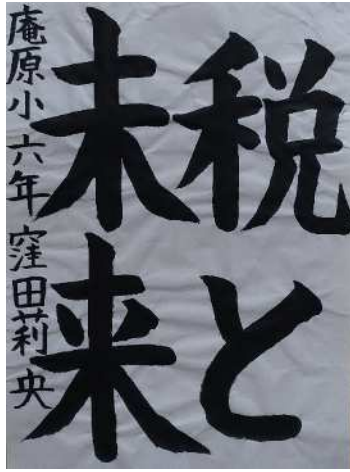 税と
未来
庵原小六年 窪田莉央